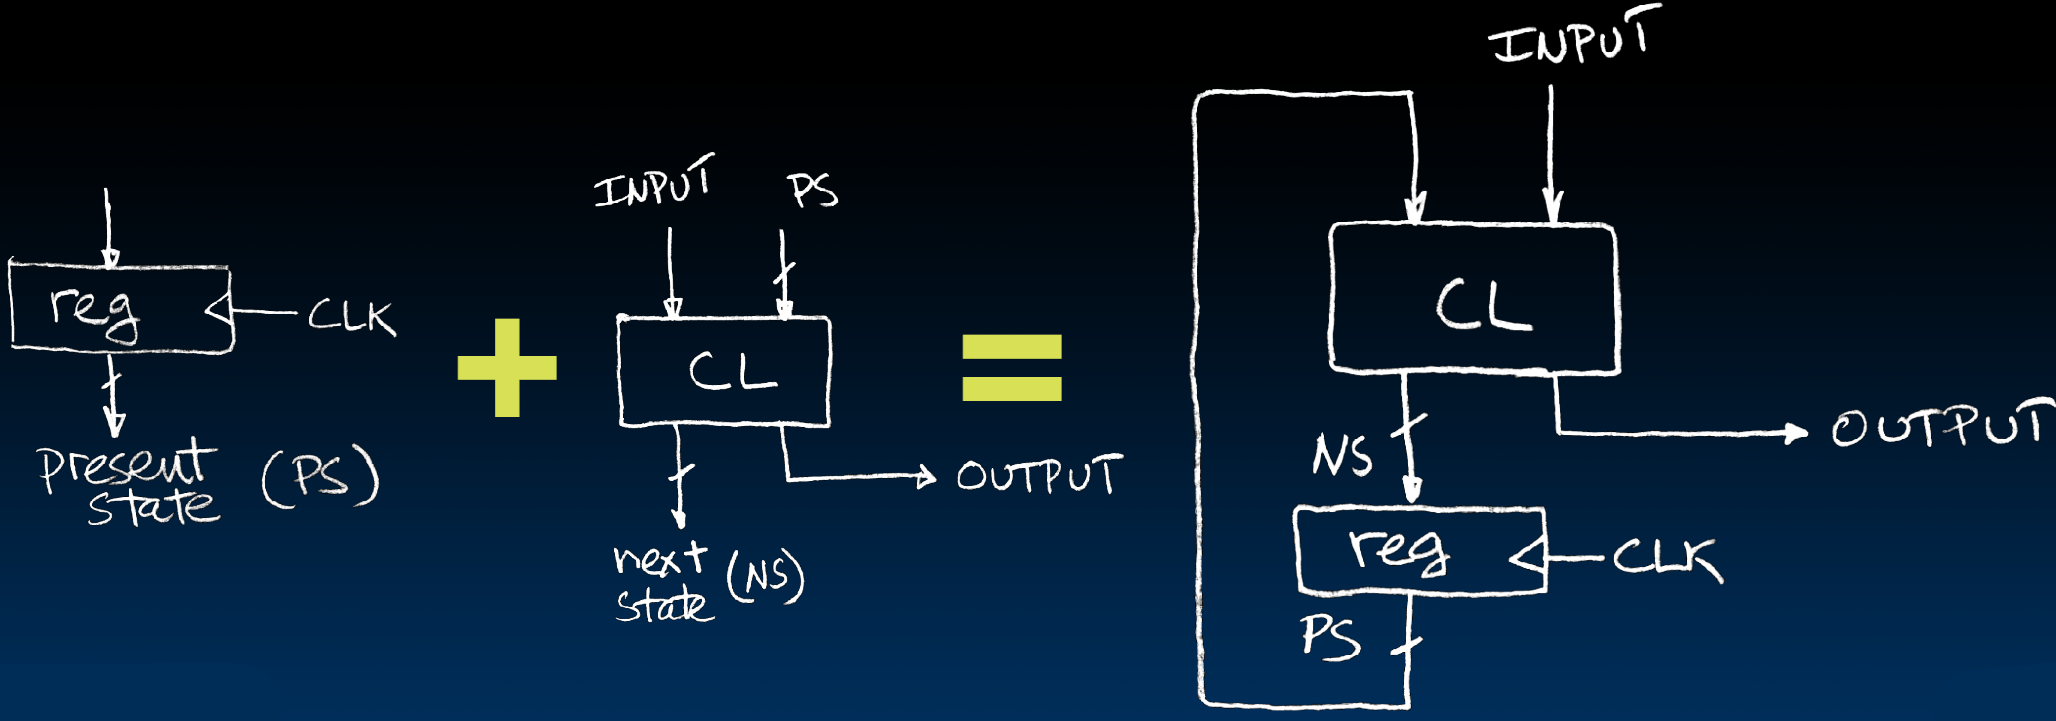 reg
CLK
present
state
(PS)
+
INPUT
PS
CL
OUTPUT
next
state
(NS)
=
INPUT
CL
OUTPUT
NS
reg
CLK
PS